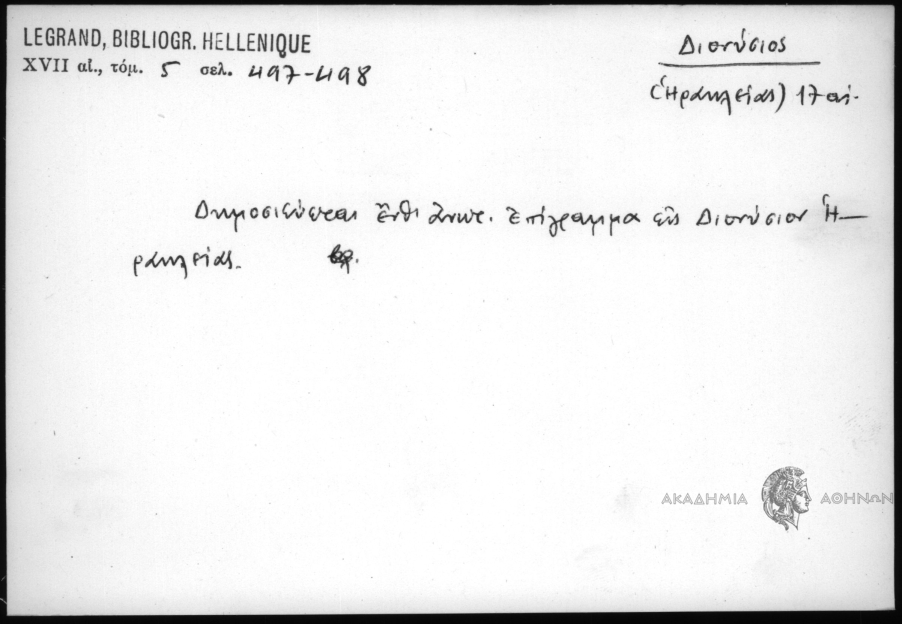 LEGRAND, BIBLIOGR. HELLENIQUE
XVII αἰ., τόμ. 5 σελ. 497-498
Διονύσιος
(Ἡρακλείας) 17 αἰ.
Δημοσιεύεται ἐπίγραμμα εἰς Διονύσιον Ἡ-
ρακλείας.
ΑΚΑΔΗΜΙΑ ΑΘΗΝΩΝ